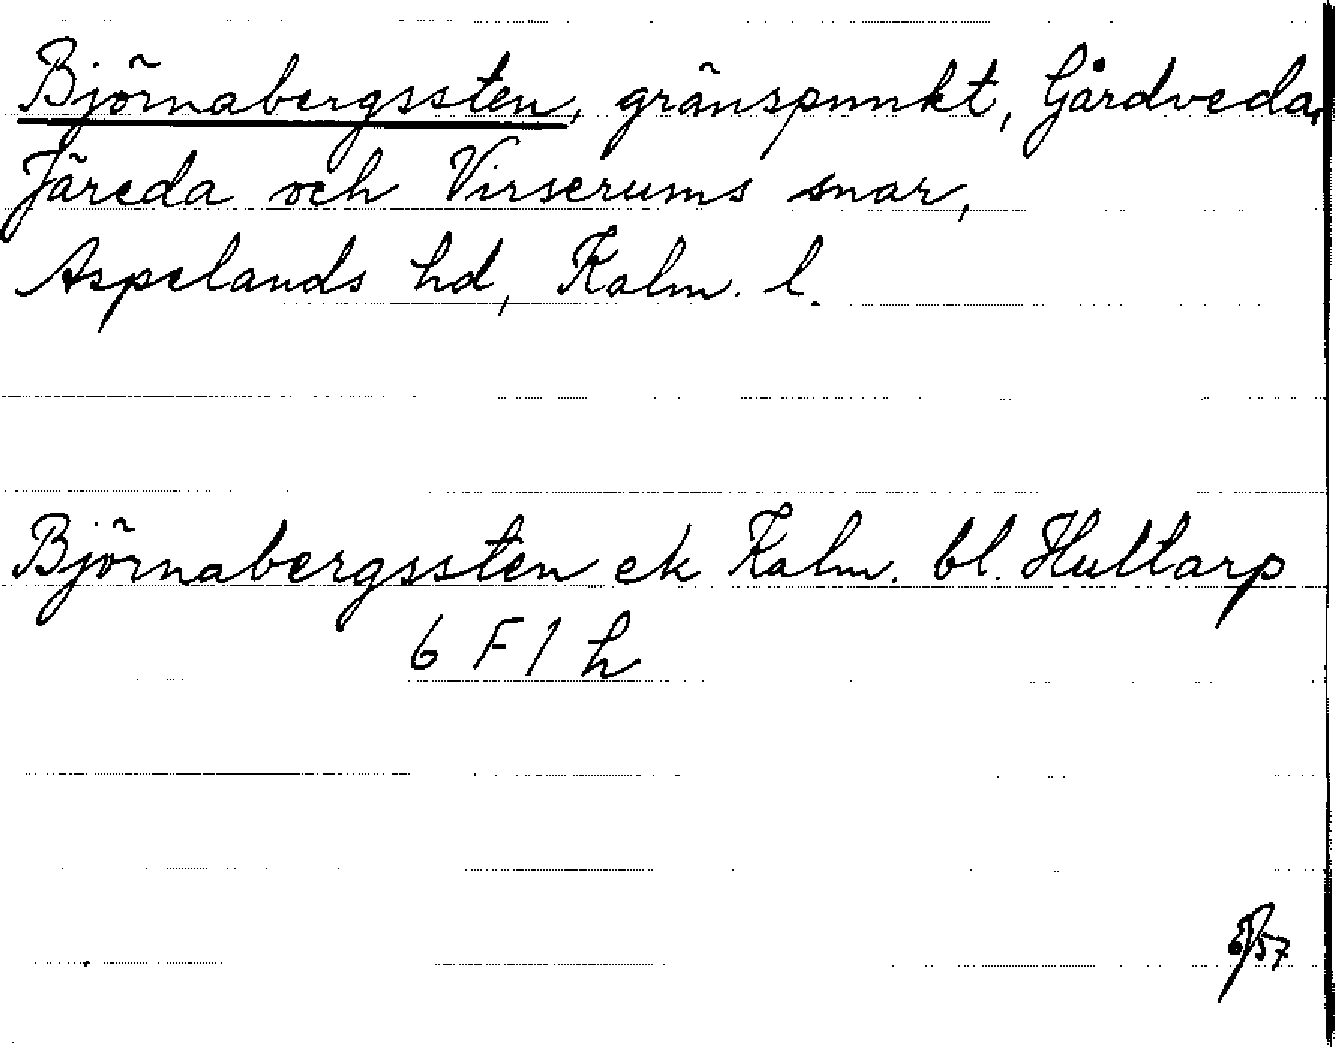 Björnabergssten, gränspunkt, Gårdveda,
Järeda och Virserums snar,
Aspelands hd, Kalm. l.
Björnabergssten ek Kalm. bl. Hultarp
6 F 1 h
57